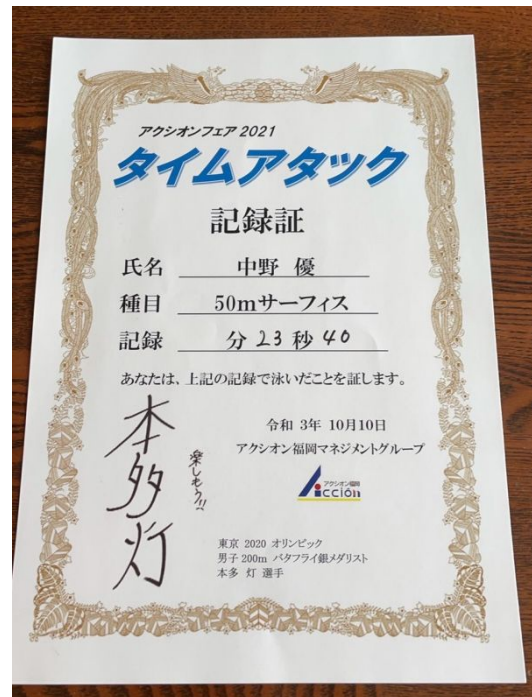 アクシオンフェア 2021
タイムアタック
記録証
氏名 中野 優
種目 50mサーフィス
記録 分 23 秒 40
あなたは、上記の記録で泳いだことを証します。
令和 3年 10月10日
アクシオン福岡マネジメントグループ
アクシオン福岡
Acción
本多灯
楽しもう!!
東京 2020 オリンピック
男子 200m バタフライ銀メダリスト
本多 灯 選手